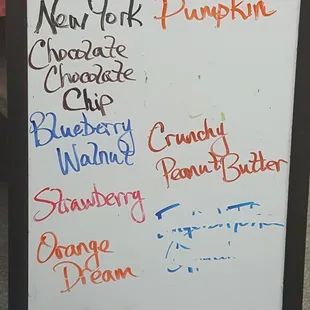 New York
Chocolate
Chocolate
Chip
Blueberry
Walnut
Strawberry
Orange
Dream
Pumpkin
Crunchy
Peanut Butter